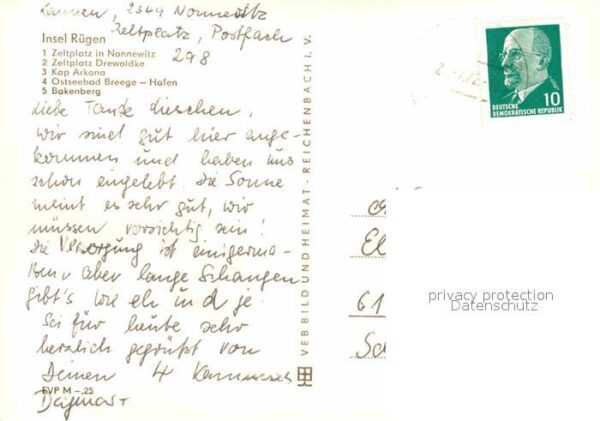 2349 Nonnewitz
Zeltplatz, Postfach
298
Insel Rügen
1 Zeltplatz in Nonnewitz
2 Zeltplatz Drewoldke
3 Kap Arkona
4 Ostseebad Breege – Hafen
5 Bakenberg
Liebe Tante Lieschen,
wir sind gut hier ange-
kommen und haben uns
schon eingelebt. Die Sonne
meint es sehr gut, wir
müssen vorsichtig sein!
Die Versorgung ist einigerma-
ßen, aber lange Schangen
gibt's wie eh und je
Sei für heute sehr
herzlich gegrüßt von
Deinen 4
Dagmar +
EVP M –,25
VEB BILD UND HEIMAT · REICHENBACH i. V.
10
DEUTSCHE
DEMOKRATISCHE REPUBLIK
El
61
privacy protection
Datenschutz